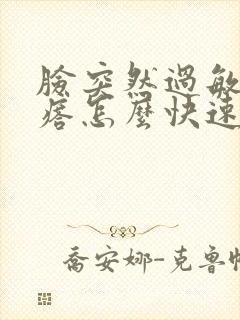 臉突然過敏
痞怎麼快速
喬安娜-克魯